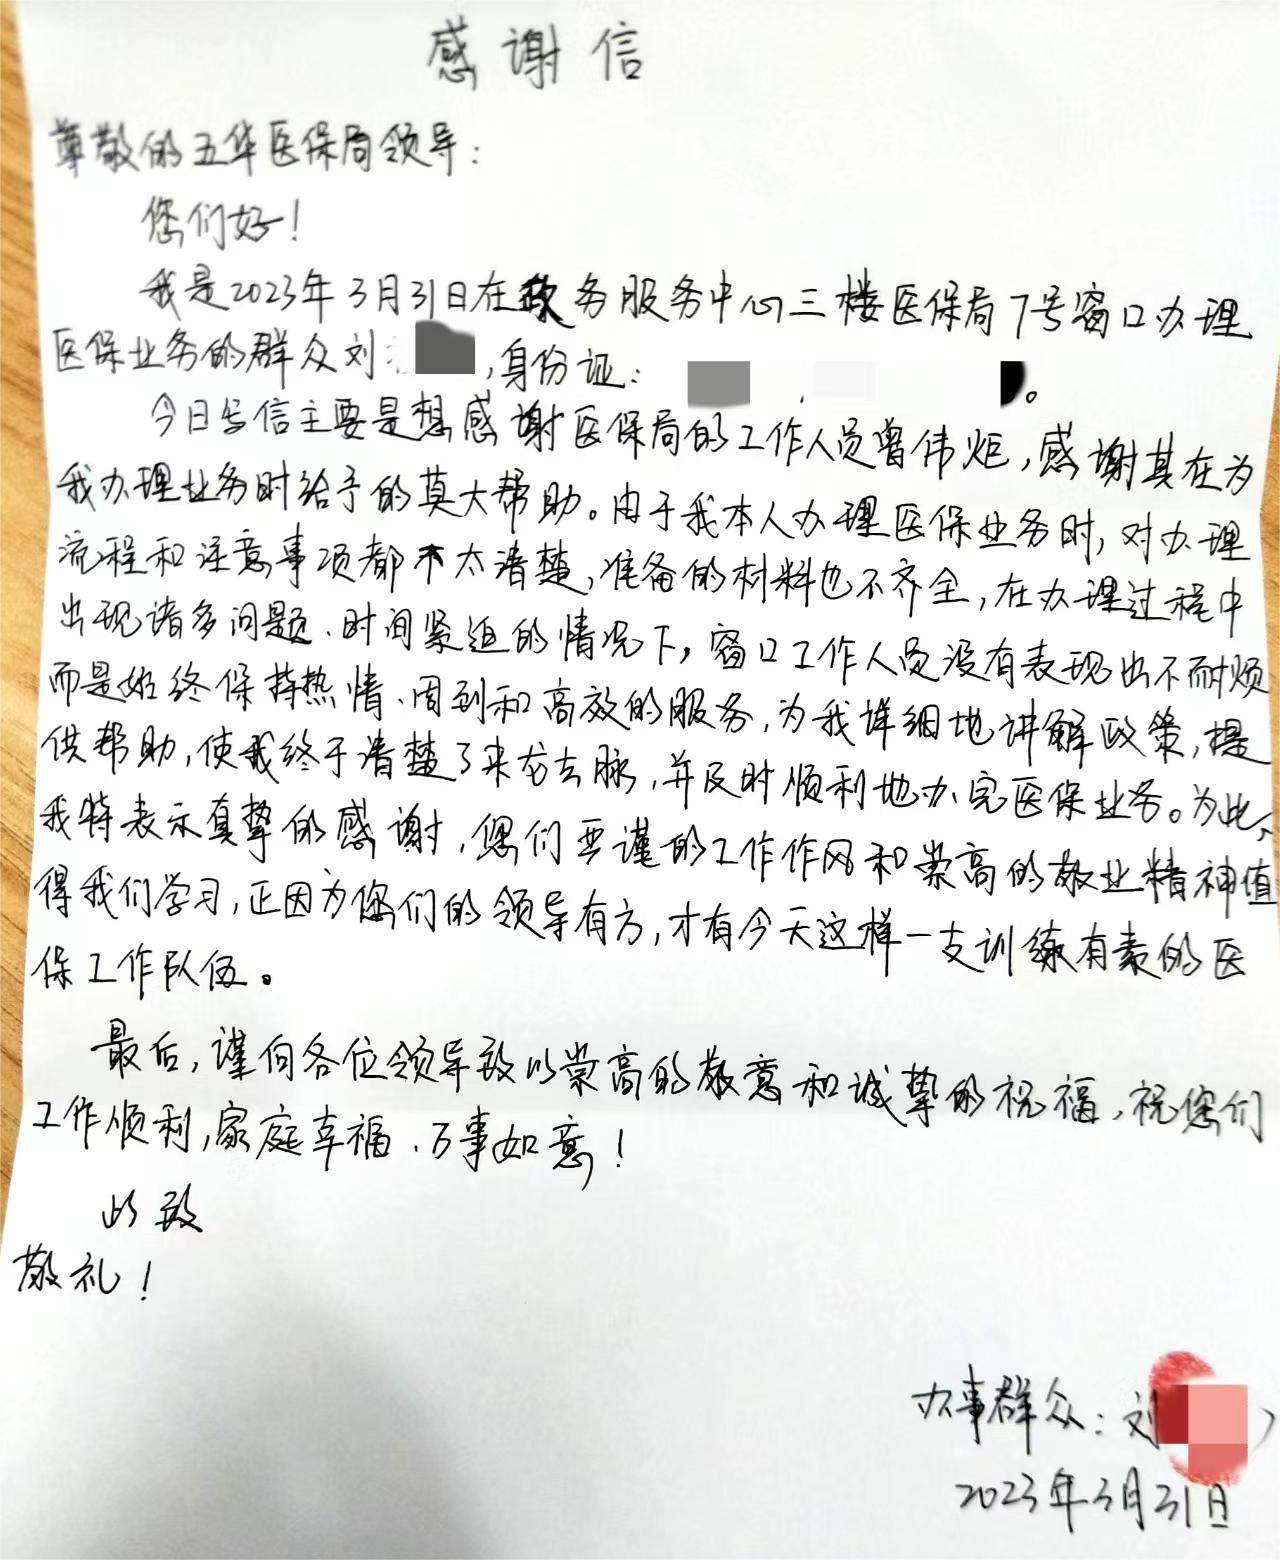 感谢信
尊敬的五华医保局领导：
您们好！
我是2023年3月31日在政务服务中心三楼医保局7号窗口办理
医保业务的群众刘，身份证：。
今日写信主要是想感谢医保局的工作人员曾伟炬，感谢其在为
我办理业务时给予的莫大帮助。由于我本人办理医保业务时，对办理
流程和注意事项都不太清楚，准备的材料也不齐全，在办理过程中
出现诸多问题、时间紧迫的情况下，窗口工作人员没有表现出不耐烦
而是始终保持热情、周到和高效的服务，为我详细地讲解政策，提
供帮助，使我终于清楚了来龙去脉，并及时顺利地办完医保业务。为此，
我特表示真挚的感谢，您们严谨的工作作风和崇高的敬业精神值
得我们学习，正因为您们的领导有方，才有今天这样一支训练有素的医
保工作队伍。
最后，谨向各位领导致以崇高的敬意和诚挚的祝福，祝您们
工作顺利，家庭幸福、万事如意！
此致
敬礼！
办事群众：刘
2023年3月31日